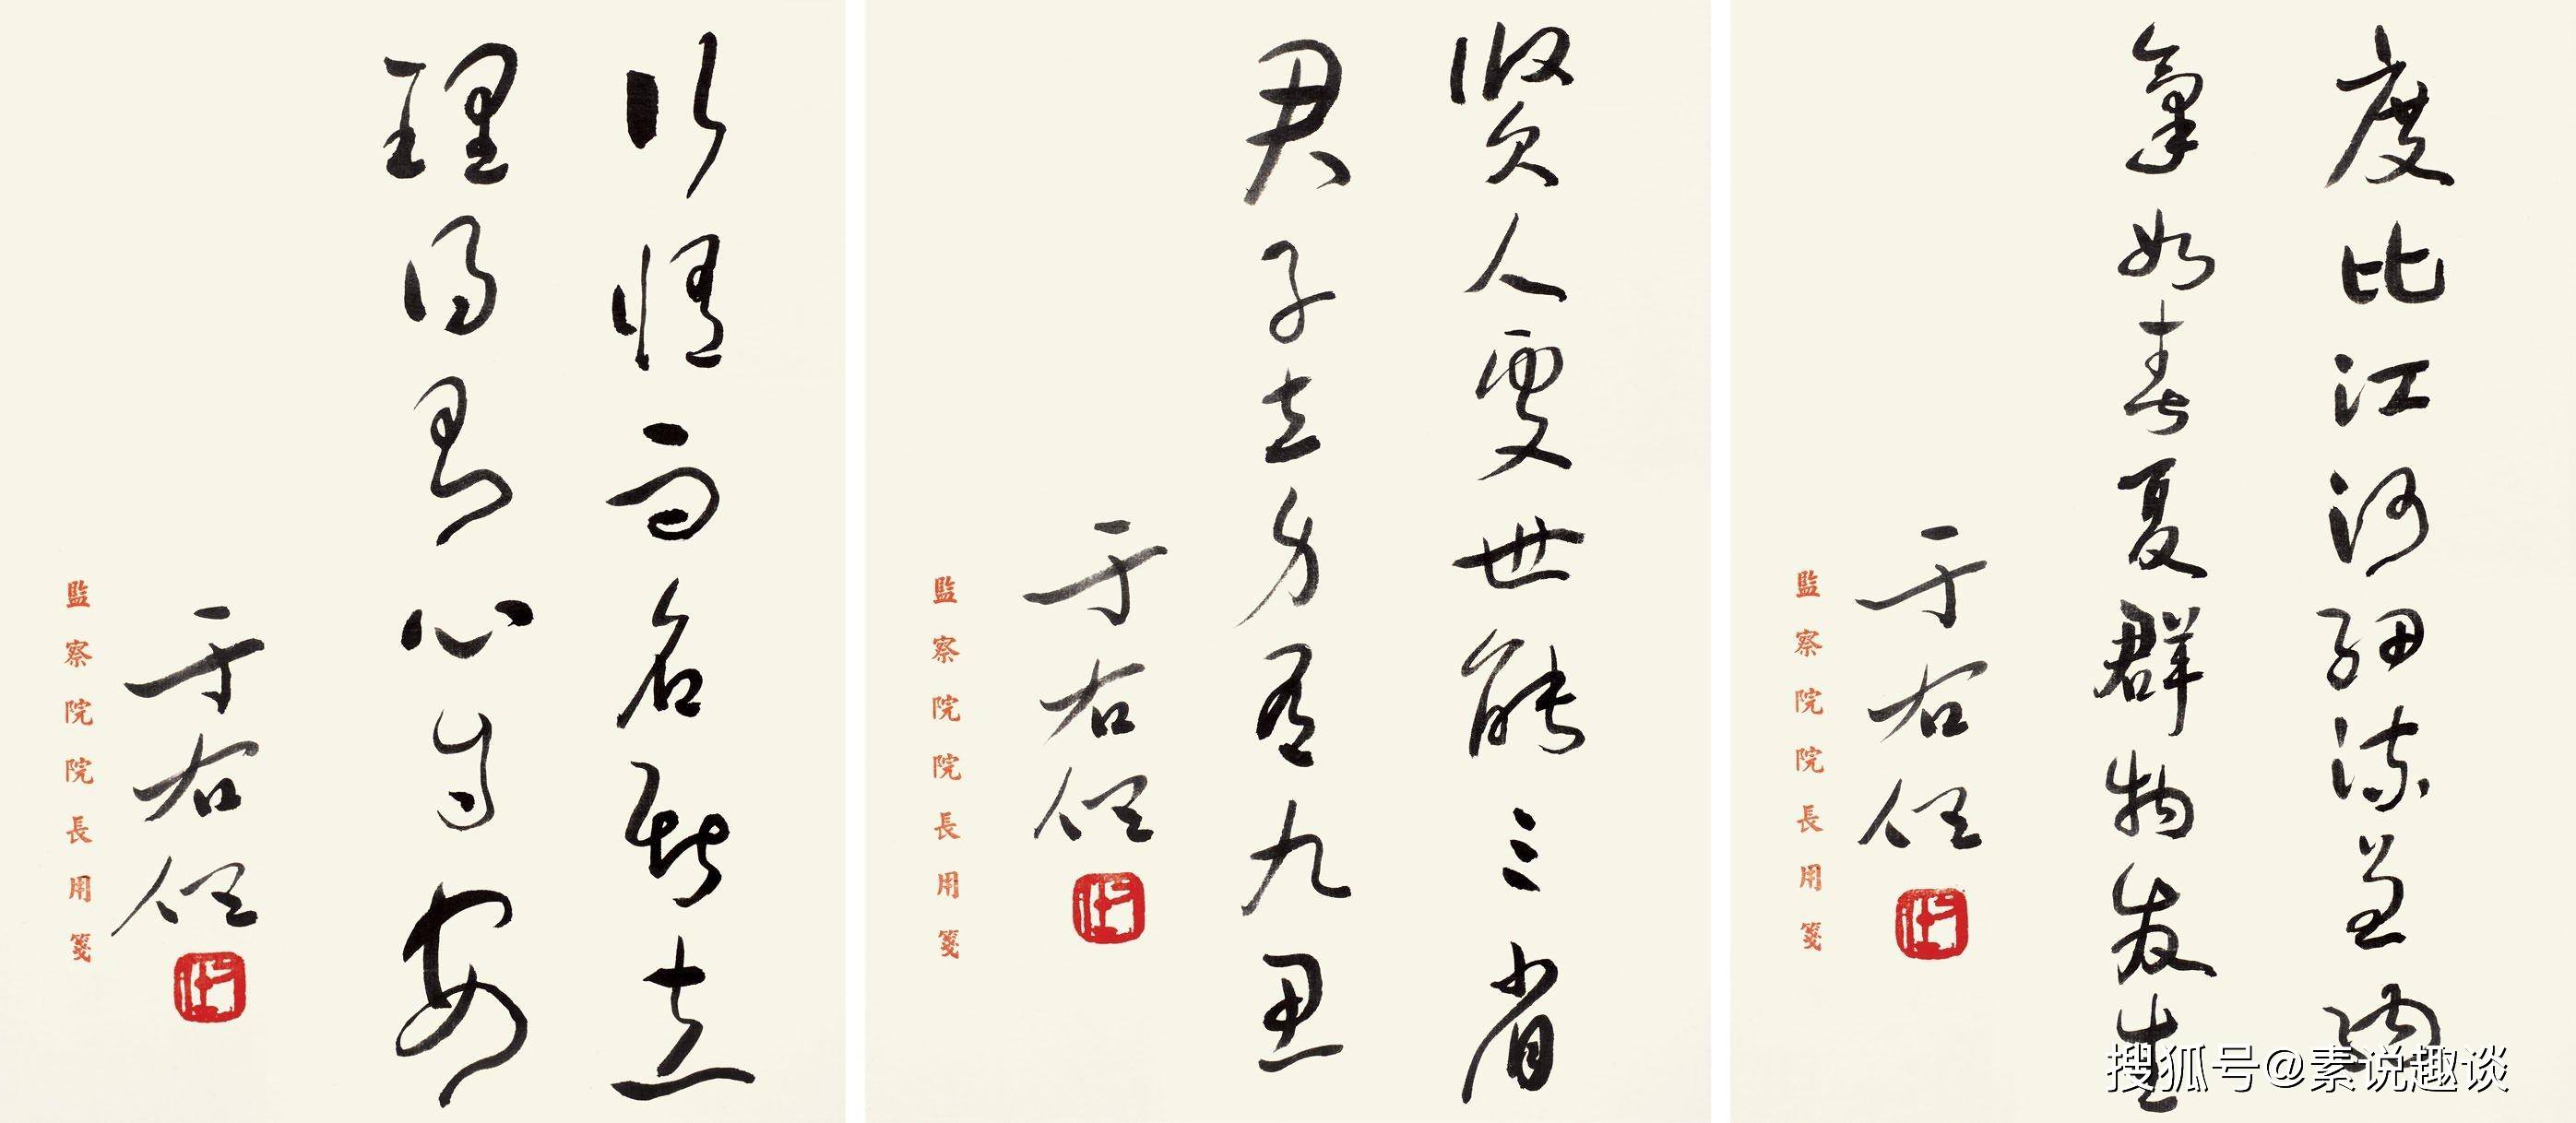 度比江河細流兼納
氣如春夏群物發生
于右任
監察院院長用箋
賢人處世能三省
君子立身有九思
于右任
監察院院長用箋
行而名斯立
理得則心自安
于右任
監察院院長用箋
搜狐号@素说趣谈